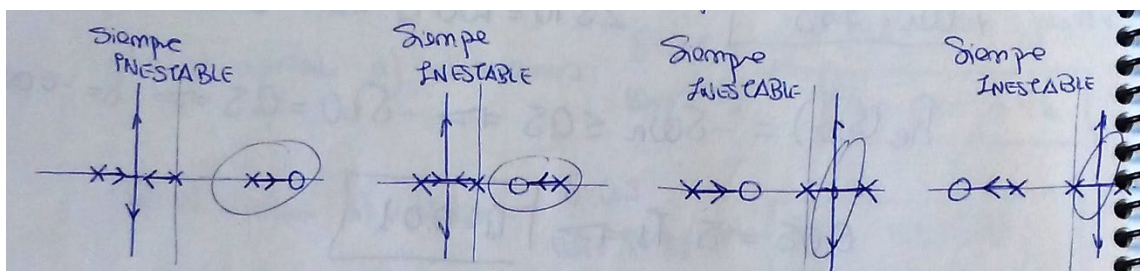 Siempe
INESTABLE
Siempe
INESTABLE
Siempe
INESTABLE
Siempe
INESTABLE